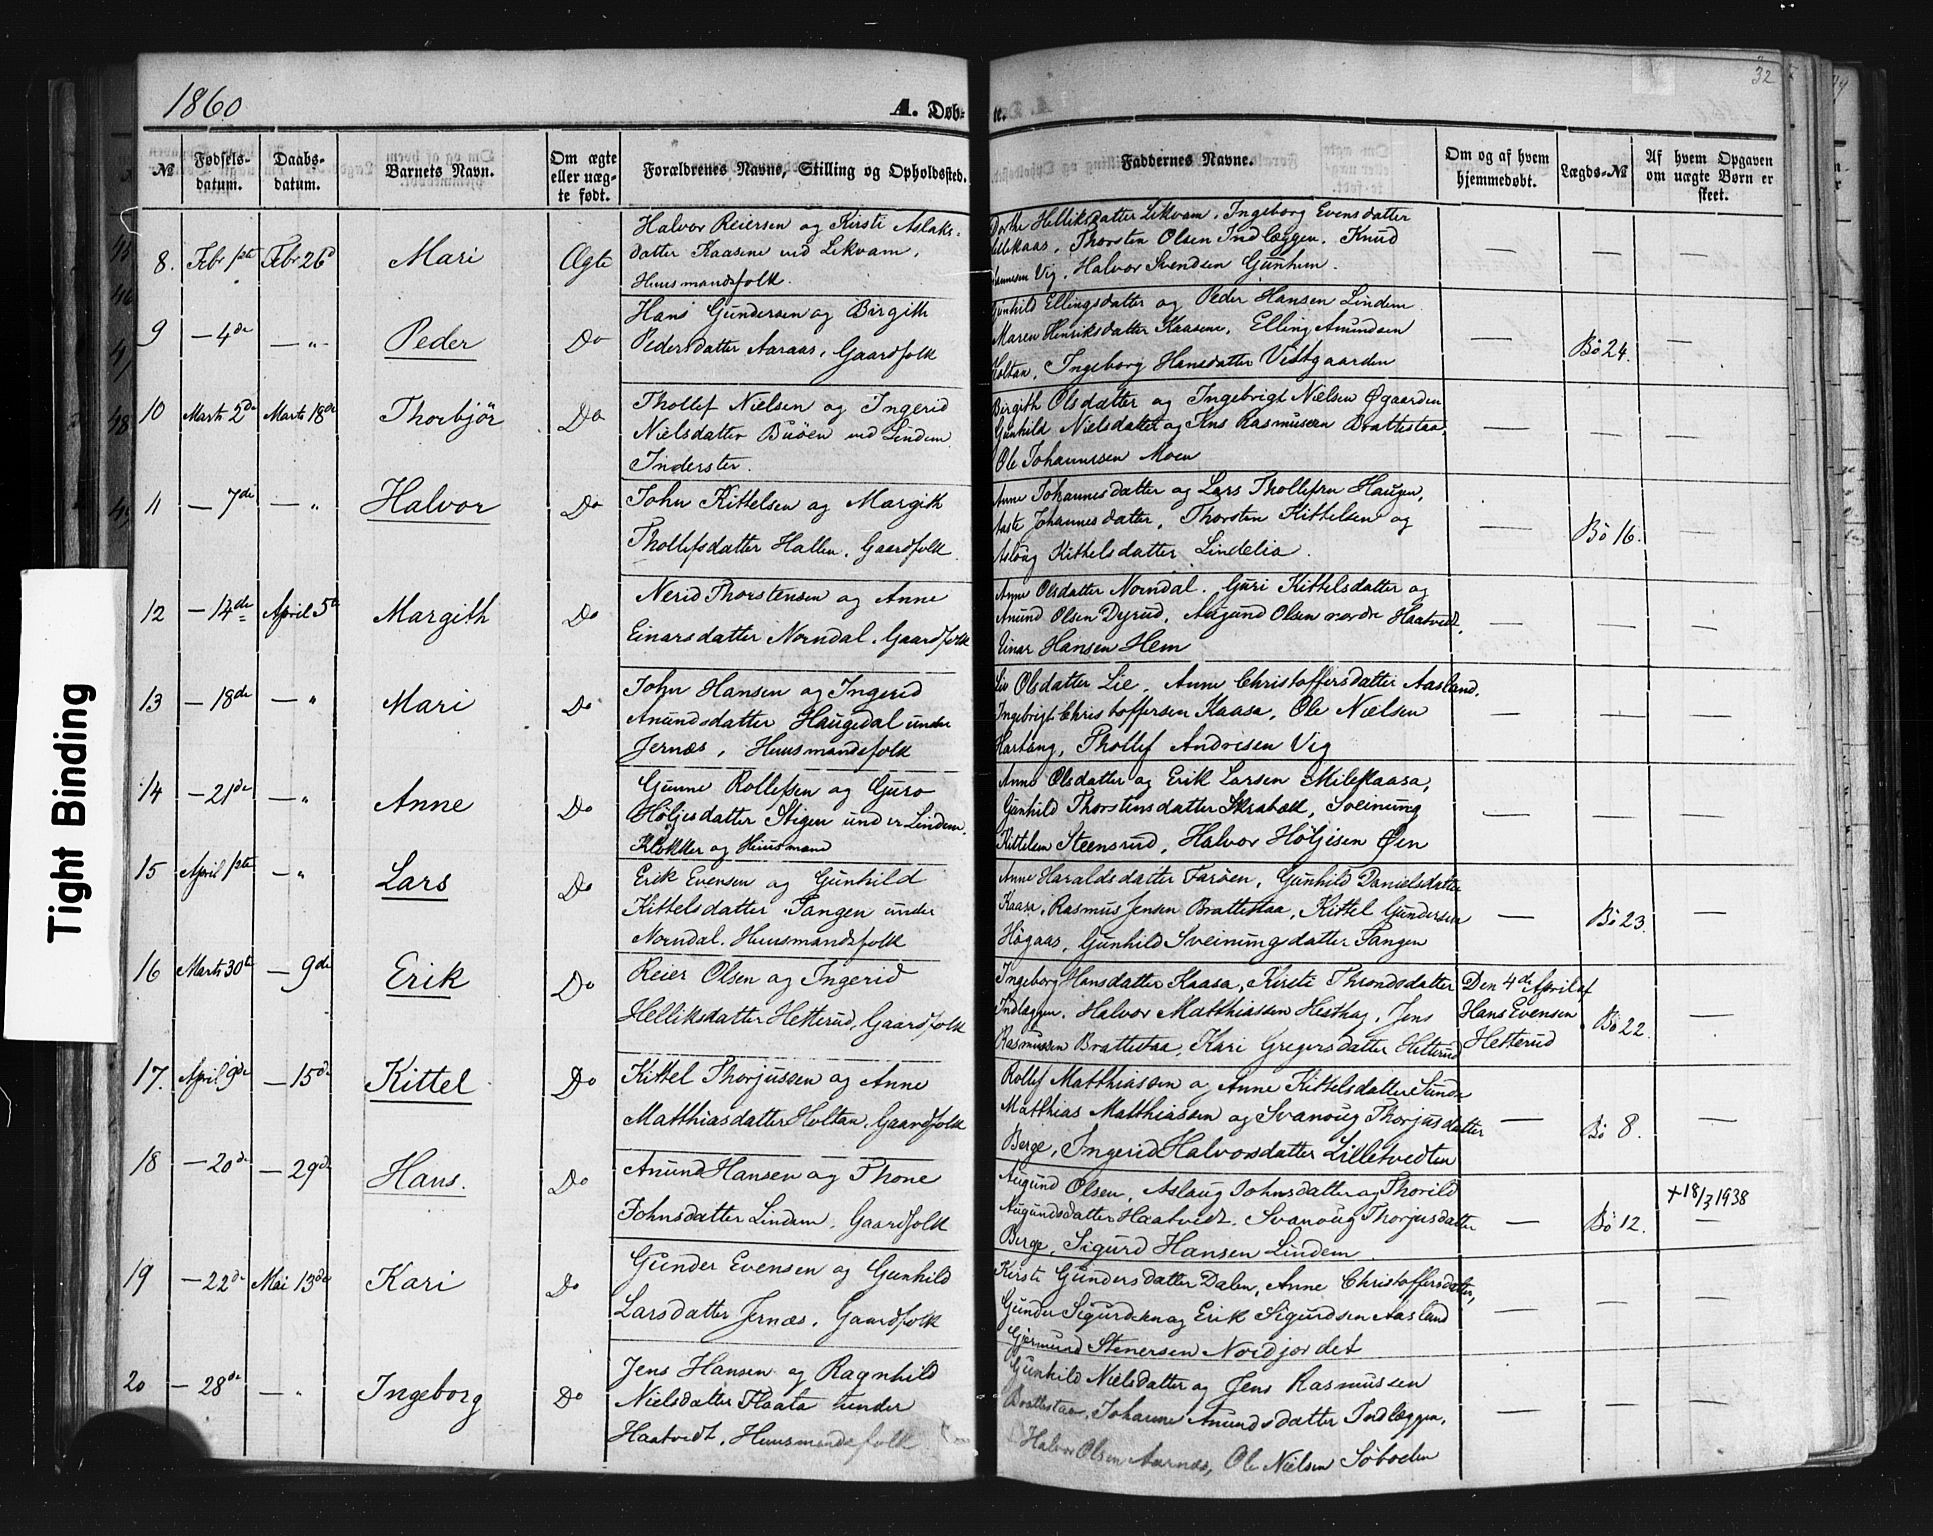 1860
A. Døb-
te.
32
№
Fødsels-
datum.
Daabs-
datum.
Barnets Navn.
Om ægte
eller uæg-
te født.
Forældrenes Navne, Stilling og Opholdssted.
Faddernes Navne.
Om og af hvem
hjemmedøbt.
Lægds-№
Af hvem Opgaven
om uægte Børn er
skeet.
8. Febr 1ste Febr 26de Mari Ægte
Halvor Reiersen og Kirsti Aslaks-
datter Kaasene ved Likvam,
Huusmandsfolk.
Dorthe Helliksdatter Likvam, Ingeborg Evensdatter
Lillekaas, Thorsten Olsen Indlæggen, Knud
Vig, Halvor Svendsen Gunhem.
— — —
9 — 4de — „ Peder Do
Hans Gundersen og Birgith
Pedersdatter Aaraas, Gaardfolk
Gunhild Ellingsdatter og Peder Hansen Lindem
Maren Henriksdatter Kaasene, Elling Amundsen
Holtan, Ingeborg Hansdatter Vestgaarden
— Bö 24. —
10 Marts 2de Marts 18de Thorbjör Do
Thollef Nielsen og Ingerid
Nielsdatter Buöen ved Lindem
Inderster.
Birgith Olsdatter og Ingebrigt Nielsen Øgaarden
Gunhild Nielsdatter og Jens Rasmussen Brattestaa,
Ole Johannessen Moen
— — —
11 — 7de — „ Halvor Do
John Kittelsen og Margith
Thollefsdatter Hallen, Gaardfolk.
Anne Johannesdatter og Lars Thollefsen Haugen,
Aaste Johannesdatter, Thorsten Kittelsen og
Aslaug Kittelsdatter Lindelia.
— Bö 16. —
12 — 14de April 5te Margith Do
Nerid Thorstensen og Anne
Einarsdatter Norndal, Gaardfolk
Anne Olsdatter Norndal. Guri Kittelsdatter og
Anund Olsen Dyrud, Augund Olsen nordre Haatvedt,
Einar Hansen Hem
— — —
13 — 18de — „ Mari Do
John Hansen og Ingerid
Anundsdatter Haugedal under
Jernæs, Huusmandsfolk
Liv Olsdatter Lie, Anne Christoffersdatter Aasland.
Ingebrigt Christoffersen Kaasa, Ole Nielsen
Hartang, Thollef Andresen Vig
— — —
14 — 21de — „ Anne Do
Gunne Rollefsen og Guro
Höljesdatter Stigen under Lindem.
Klokker og Huusmand
Anne Olsdatter og Erik Larsen Milekaasa,
Gunhild Thorstensdatter Skrabæk, Sveinung
Kittelsen Steensrud, Halvor Höljesen Öen
— — —
15 April 1ste — „ Lars Do
Erik Evensen og Gunhild
Kittelsdatter Tangen under
Norndal. Huusmandsfolk
Anne Haraldsdatter Faröen, Gunhild Danielsdatter
Kaasa, Rasmus Jensen Brattestaa, Kittel Gundersen
Högaas, Gunhild Sveinungsdatter Tangen
— Bö 23. —
16 Marts 30te — 9de Erik Do
Reier Olsen og Ingerid
Helliksdatter Hetterud, Gaardfolk
Ingeborg Hansdatter Kaasa, Kirsti Throndsdatter
Indlæggen, Halvor Matthiassen Hesthag, Jens
Rasmussen Brattestaa, Kari Gregersdatter Hetterud
Den 4de April af
Hans Evensen
Hetterud
Bö 22. —
17. April 9de — 15de Kittel Do
Kittel Thorjussen og Anne
Matthiasdatter Holtan, Gaardfolk
Rollef Matthiassen og Anne Kittelsdatter Sunde
Matthias Matthiassen og Svanoug Thorjusdatter
Berge, Ingerid Halvorsdatter Lilletvedten
— Bö 8. —
18 — 20de — 29de Hans. Do
Anund Hansen og Thone
Johnsdatter Lindem, Gaardfolk
Augund Olsen, Aslaug Johnsdatter og Thorild
Augundsdatter Haatvedt, Svanoug Thorjusdatter
Berge, Sigurd Hansen Lindem
— Bö 12. —
+ 18/3 1938
19 — 22de Mai 13de Kari Do
Gunder Evensen og Gunhild
Larsdatter Jernæs, Gaardfolk
Kirsti Gundersdatter Dalen, Anne Christoffersdatter,
Gunder Sigurdsen og Erik Sigurdsen Aasland
Gjermund Stenersen Nordjordet
— — —
20 — 28de — „ Ingeborg Do
Jens Hansen og Ragnhild
Nielsdatter Flaata under
Haatvedt, Huusmandsfolk
Gunhild Nielsdatter og Jens Rasmussen
Brattestaa, Johanne Anundsdatter Indlæggen,
Halvor Olsen Aarnæs, Ole Nielsen Söboden
— — —
Tight Binding